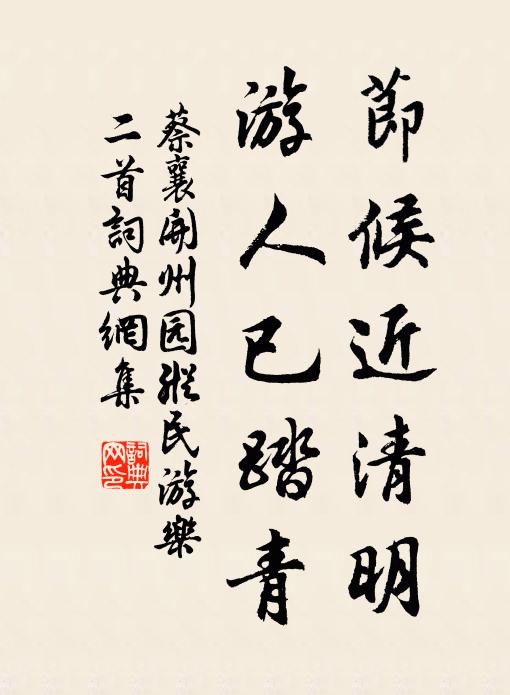 節候近清明
游人已踏青
蔡襄開州园縱民游樂
二首詞典網集
詞典
网印